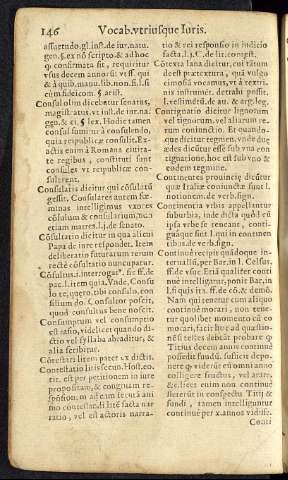 146 Vocab. vtriusque Iuris.
assuetudo. gl. inst. de iur. natu.
gen. §. ex nō scripto. & ad hoc
q confirmata sit, requiritur
vsus decem annorū vt ff. qui
& à quib. manu. lib. non fi. li
cum fideicom. §. arist.
Consul olim dicebatur senatus,
magistratus, vt inst. de iur. na.
gen. & ci. § lex. Hodie tamen
consul sumitur à consulendo,
quia reipublicæ consulit. Ex-
actis enim à Romana ciuita-
te regibus, constituti sunt
consules vt reipublicæ con-
sulerent.
Consularis dicitur qui cōsulatū
gessit. Consulares autem fœ-
minas intelligimus vxores
cōsulum & consularium, non
etiam matres. l. j. de senato.
Cōsultatio dicitur in qua alicui
Papa de iure respondet. Item
deliberatio futurarum rerum
rectè cōsultatio nuncupatur.
pac. l. item quia. Vnde. Conso
lo te, quero. tibi consulo, con
silium do. Consulor possit,
quod consultus bene noscit.
Consumptum vel consumptio
est rasio, videlicet quando di-
ctio vel syllaba abraditur, &
alia scribitur.
Contestari litem patet ex dictis.
Contestatio litis secun. Host. eo.
tit. est per petitionem in iure
propositam, & congruam re-
sponsionem, ad eam secuta ani
mo contestandi lite facta nar-
ratio, vel est actoris narra-
tio & rei responsio in iudicio
facta. l. j. C. de lit. contest.
dē est prætextura, quā vulgo
cimossa vocamus, vt à textri-
nis instrumēt. detrahi possit,
l. vestimētū. de au. & arg. leg.
Contignatio dicitur lignorum
vel lignum, vel aliarum re-
rum coniunctio. Et quando-
que dicitur tegmen. vnde duę
ędes dicūtur esse sub vna con
tignatione, hoc est sub vno &
eodem tegmine.
Continentes prouincię dicūtur
quæ Italiæ coniunctæ sunt l.
notionem. de verb. sign.
Continentia vrbis appellantur
suburbia, inde dicta quòd cū
ipsa vrbe se teneant, conti-
guáque sint. l. qui in continen
tibus. de verb. sign.
Continuè recipit quādoque in-
teruallū, per Bar. in l. Celsus.
ff. de vsuc. Etiā qualiter conti
nuè intelligatur, ponit Bar. in
Nam qui tenetur cum aliquo
continuè morari, non tene-
tur quolibet momento cū eo
morari, facit hoc ad quæstio-
nē si testes debēt probare q
Titius decem annis continuè
possedit fundū. sufficit depo-
nere q viderūt eū omni anno
colligere fructus, vel arare,
& c. licet enim non continuè
steterūt in conspectu Titij &
fundi, tamen intelligūtur
continuè per x. annos vidisse.
Conti